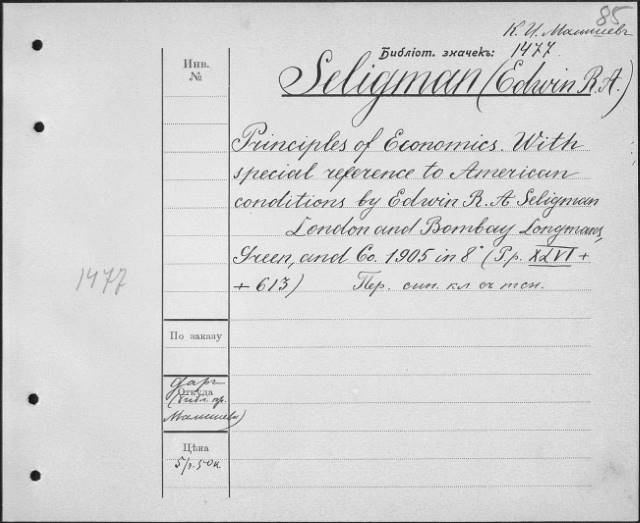 85
К. И. Малышевъ
Библіот. значекъ: 1477
Инв.
№
Seligman (Edwin R. A.)
Principles of Economics. With
special reference to American
conditions by Edwin R. A. Seligman
London and Bombay Longmans,
Green, and Co. 1905 in 8° (Pp. XLVI +
+ 613) Пер. син. кл
1477
По заказу
Даръ
Откуда
Малышева)
Цѣна
5 р. 50 к